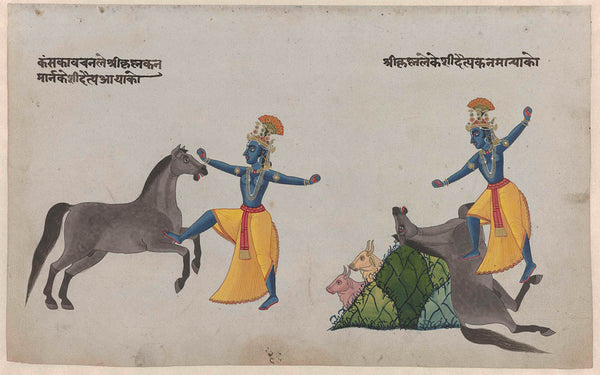 कंसकावचनलेश्रीकृस्नकन
मार्नकेशीदैत्यआयाको
श्रीकृस्नलेकेशीदैत्यकनमार्‍याको